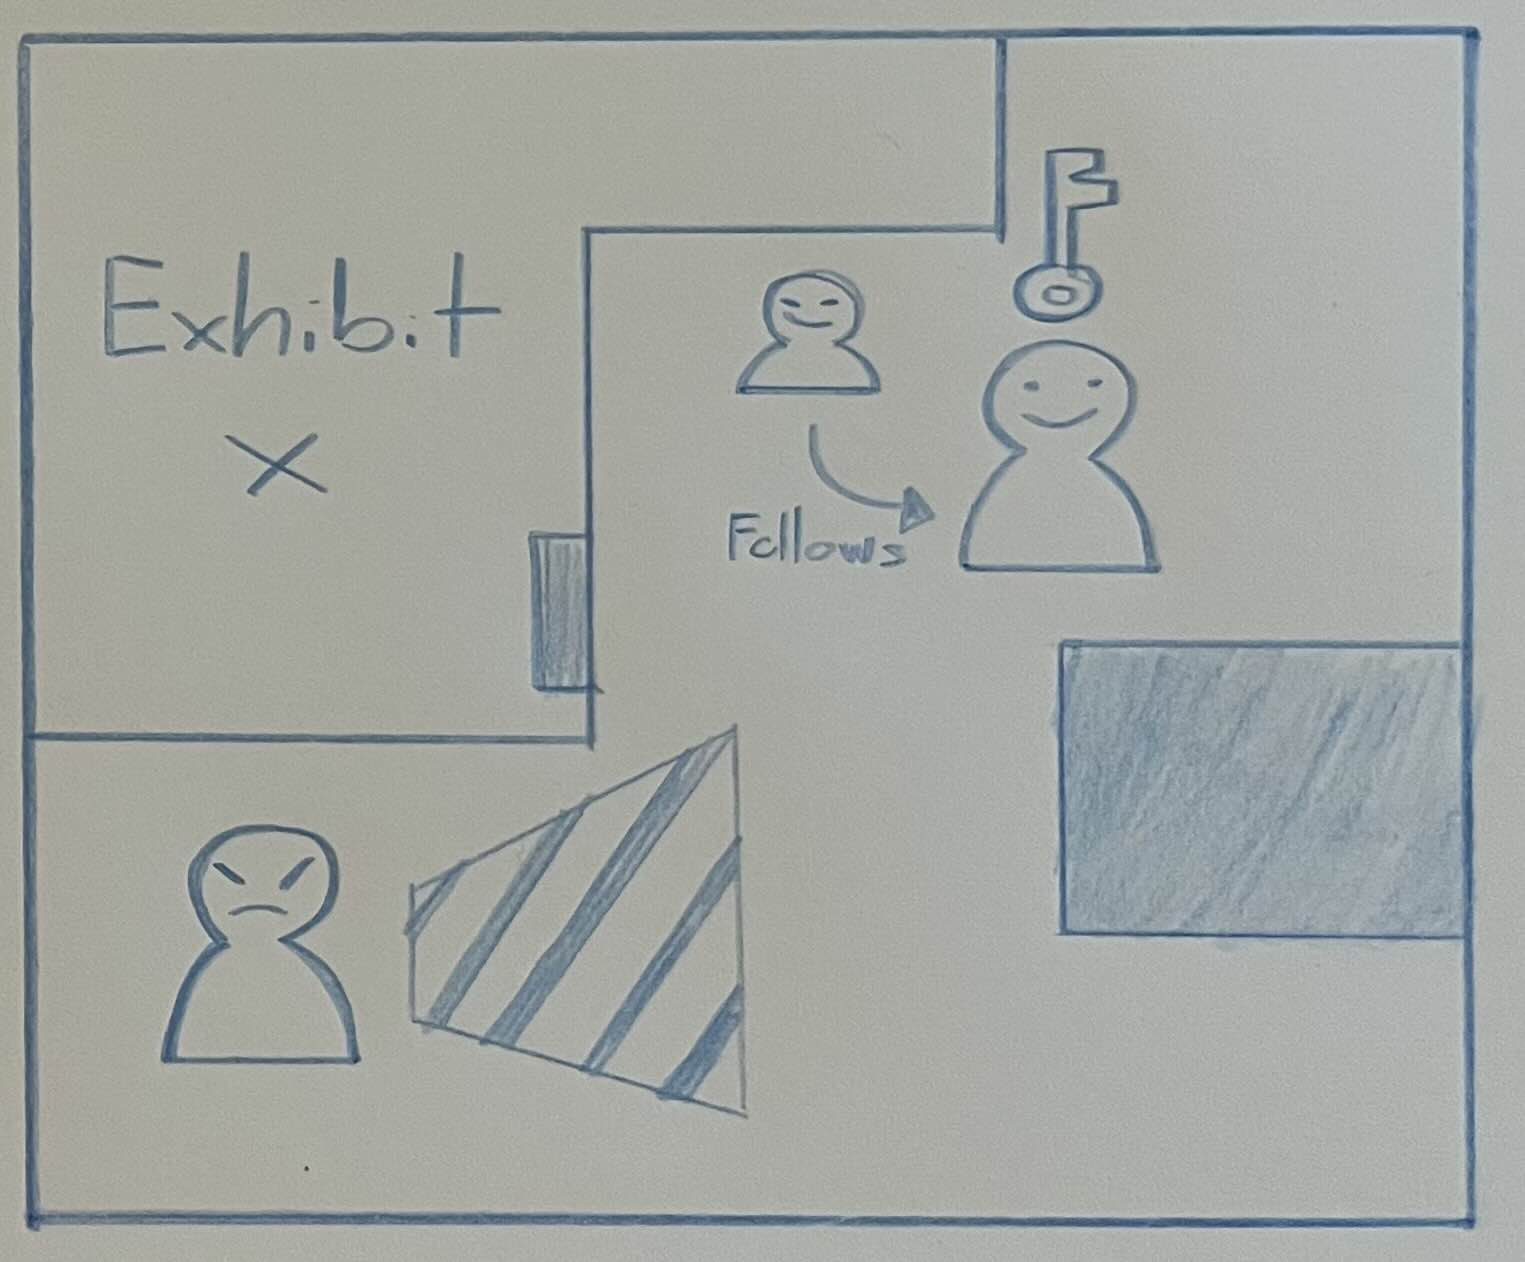 Exhibit
X
Follows